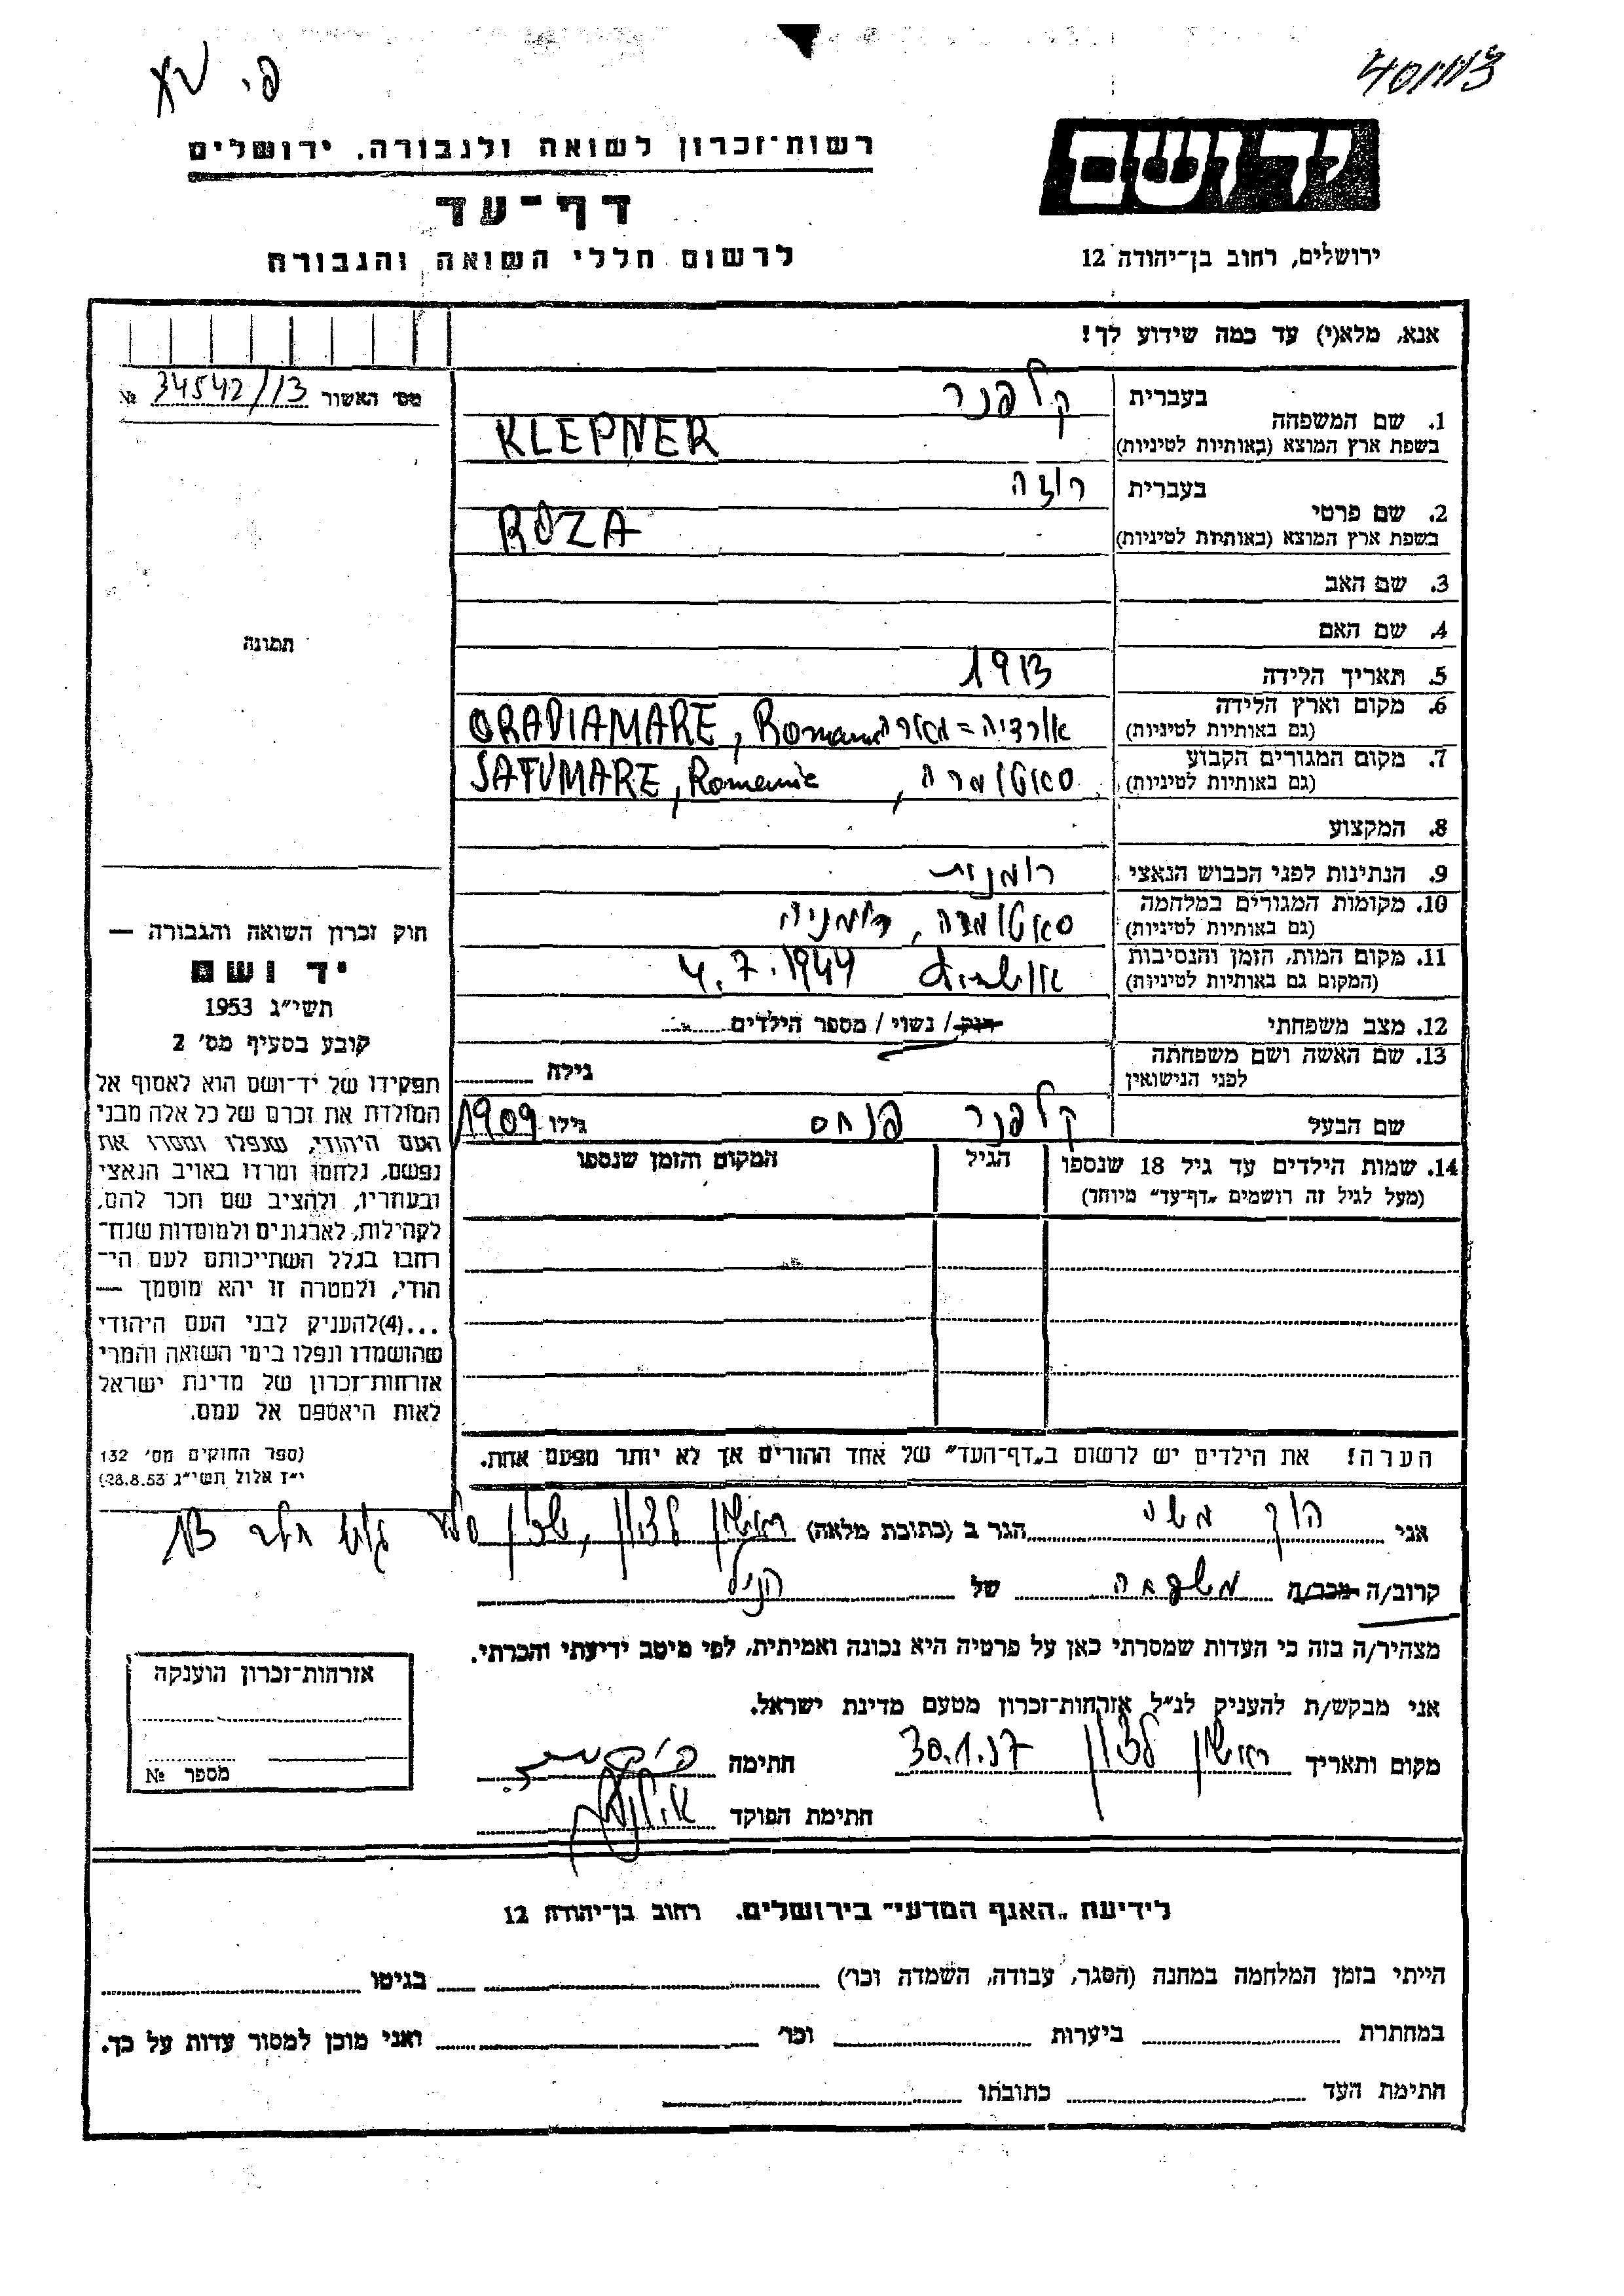 פ.
40/113
יד ושם
רשות־זכרון לשואה ולגבורה. ירושלים
דף־עד
לרשום חללי השואה והגבורה
ירושלים, רחוב בן־יהודה 12
אנא, מלא(י) עד כמה שידוע לך!
מס׳ האשור 34542/13 №
1. שם המשפחה בעברית קלפנר
בשפת ארץ המוצא (באותיות לטיניות) KLEPNER
2. שם פרטי בעברית רוזה
בשפת ארץ המוצא (באותיות לטיניות) ROZA
3. שם האב
4. שם האם
תמונה
5. תאריך הלידה 1913
6. מקום וארץ הלידה אורדיה=מארה ORADIAMARE, Romania
(גם באותיות לטיניות)
7. מקום המגורים הקבוע סאטומרה, SATUMARE, Romania
(גם באותיות לטיניות)
8. המקצוע
9. הנתינות לפני הכבוש הנאצי רומנית
10. מקומות המגורים במלחמה סאטומרה, רומניה
(גם באותיות לטיניות)
11. מקום המות, הזמן והנסיבות אושביץ 4.7.1944
(המקום גם באותיות לטיניות)
12. מצב משפחתי רוק / נשוי / מספר הילדים
13. שם האשה ושם משפחתה גילה
לפני הנישואין
שם הבעל קלפנר פנחס גילו 1909
14. שמות הילדים עד גיל 18 שנספו הגיל המקום והזמן שנספו
(מעל לגיל זה רושמים „דף־עד״ מיוחד)
חוק זכרון השואה והגבורה —
יד ושם
תשי״ג 1953
קובע בסעיף מס׳ 2
תפקידו של יד־ושם הוא לאסוף אל
המולדת את זכרם של כל אלה מבני
העם היהודי, שנפלו ומסרו את
נפשם, נלחמו ומרדו באויב הנאצי
ובעוזריו, ולהציב שם וזכר להם,
לקהילות, לארגונים ולמוסדות שנח־
רחבו בגלל השתייכותם לעם הי־
הודי, ולמטרה זו יהא מוסמך —
...(4) להעניק לבני העם היהודי
שהושמדו ונפלו בימי השואה והמרי
אזרחות־זכרון של מדינת ישראל
לאות היאספם אל עמם.
(ספר החוקים מס׳ 132
י״ז אלול תשי״ג 28.8.53)
הערה! את הילדים יש לרשום ב„דף־העד״ של אחד ההורים אך לא יותר מפעם אחת.
אני הגר ב (כתובת מלאה) ראשון לציון,
קרוב/ה מכר/ה משפחה של הנ״ל
מצהיר/ה בזה כי העדות שמסרתי כאן על פרטיה היא נכונה ואמיתית, לפי מיטב ידיעתי והכרתי.
אני מבקש/ת להעניק לנ״ל אזרחות־זכרון מטעם מדינת ישראל.
מקום ותאריך ראשון לציון 30.1.57 חתימה
חתימת הפוקד
אזרחות־זכרון הוענקה
מספר №
לידיעת „האגף המדעי״ בירושלים. רחוב בן־יהודה 12
הייתי בזמן המלחמה במחנה (הסגר, עבודה, השמדה וכו׳) בגיטו
במחתרת ביערות וכו׳ ואני מוכן למסור עדות על כך.
חתימת העד כתובתו